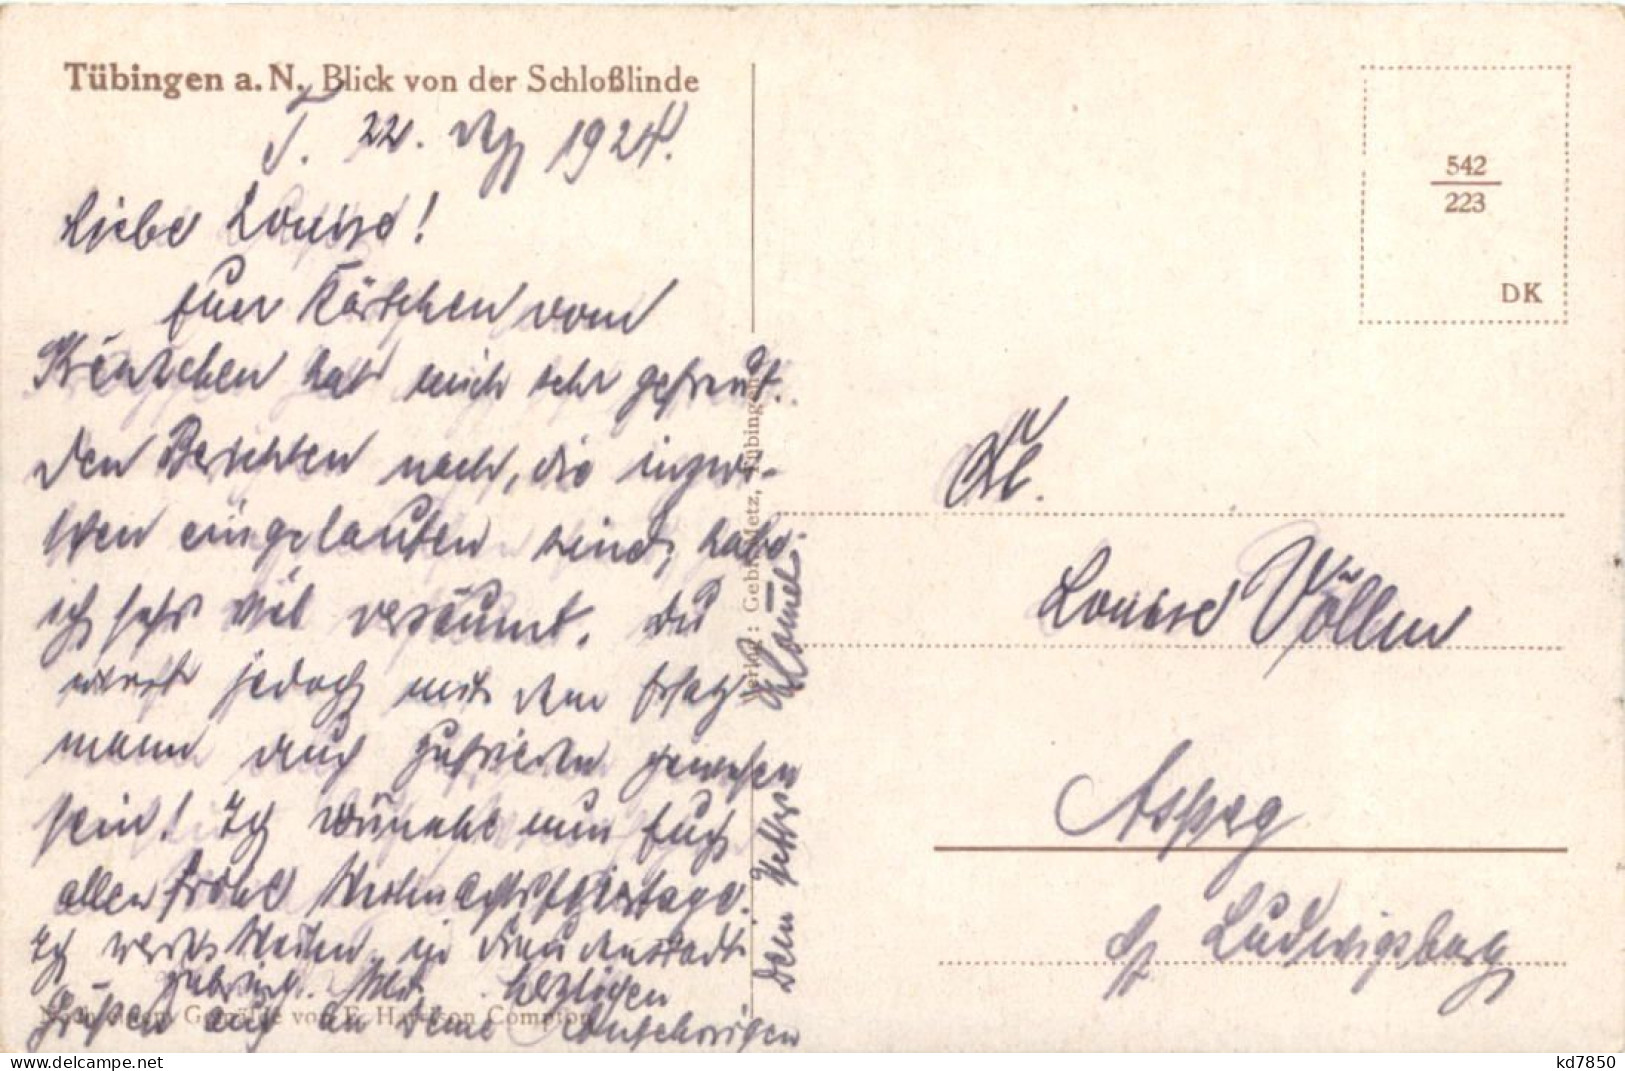 Tübingen a. N. Blick von der Schloßlinde
T. 22. Dez 1924.
Liebe Louise!
Euer Kärtchen vom
Kränzchen hat mich sehr gefreut.
Den Berichten nach, die inzwi-
schen eingelaufen sind, habe
ich sehr viel versäumt. Du
wirst jedoch mit dem Ersatz-
mann auch zufrieden gewesen
sein! Ich wünsche nun Euch
allen frohe Weihnachtsfeiertage.
Ich werde Weihn. in Freudenstadt
zubringen. Mit herzlichen
Grüßen auch an Deine Angehörigen
Dein Vetter
Nach einem Gemälde von E. Harrison Compton
Verlag: Gebr. Metz, Tübingen
542
223
DK
Frl.
Louise Völlm
Asperg
b/ Ludwigsburg
https://www.delcampe.net
kd7850